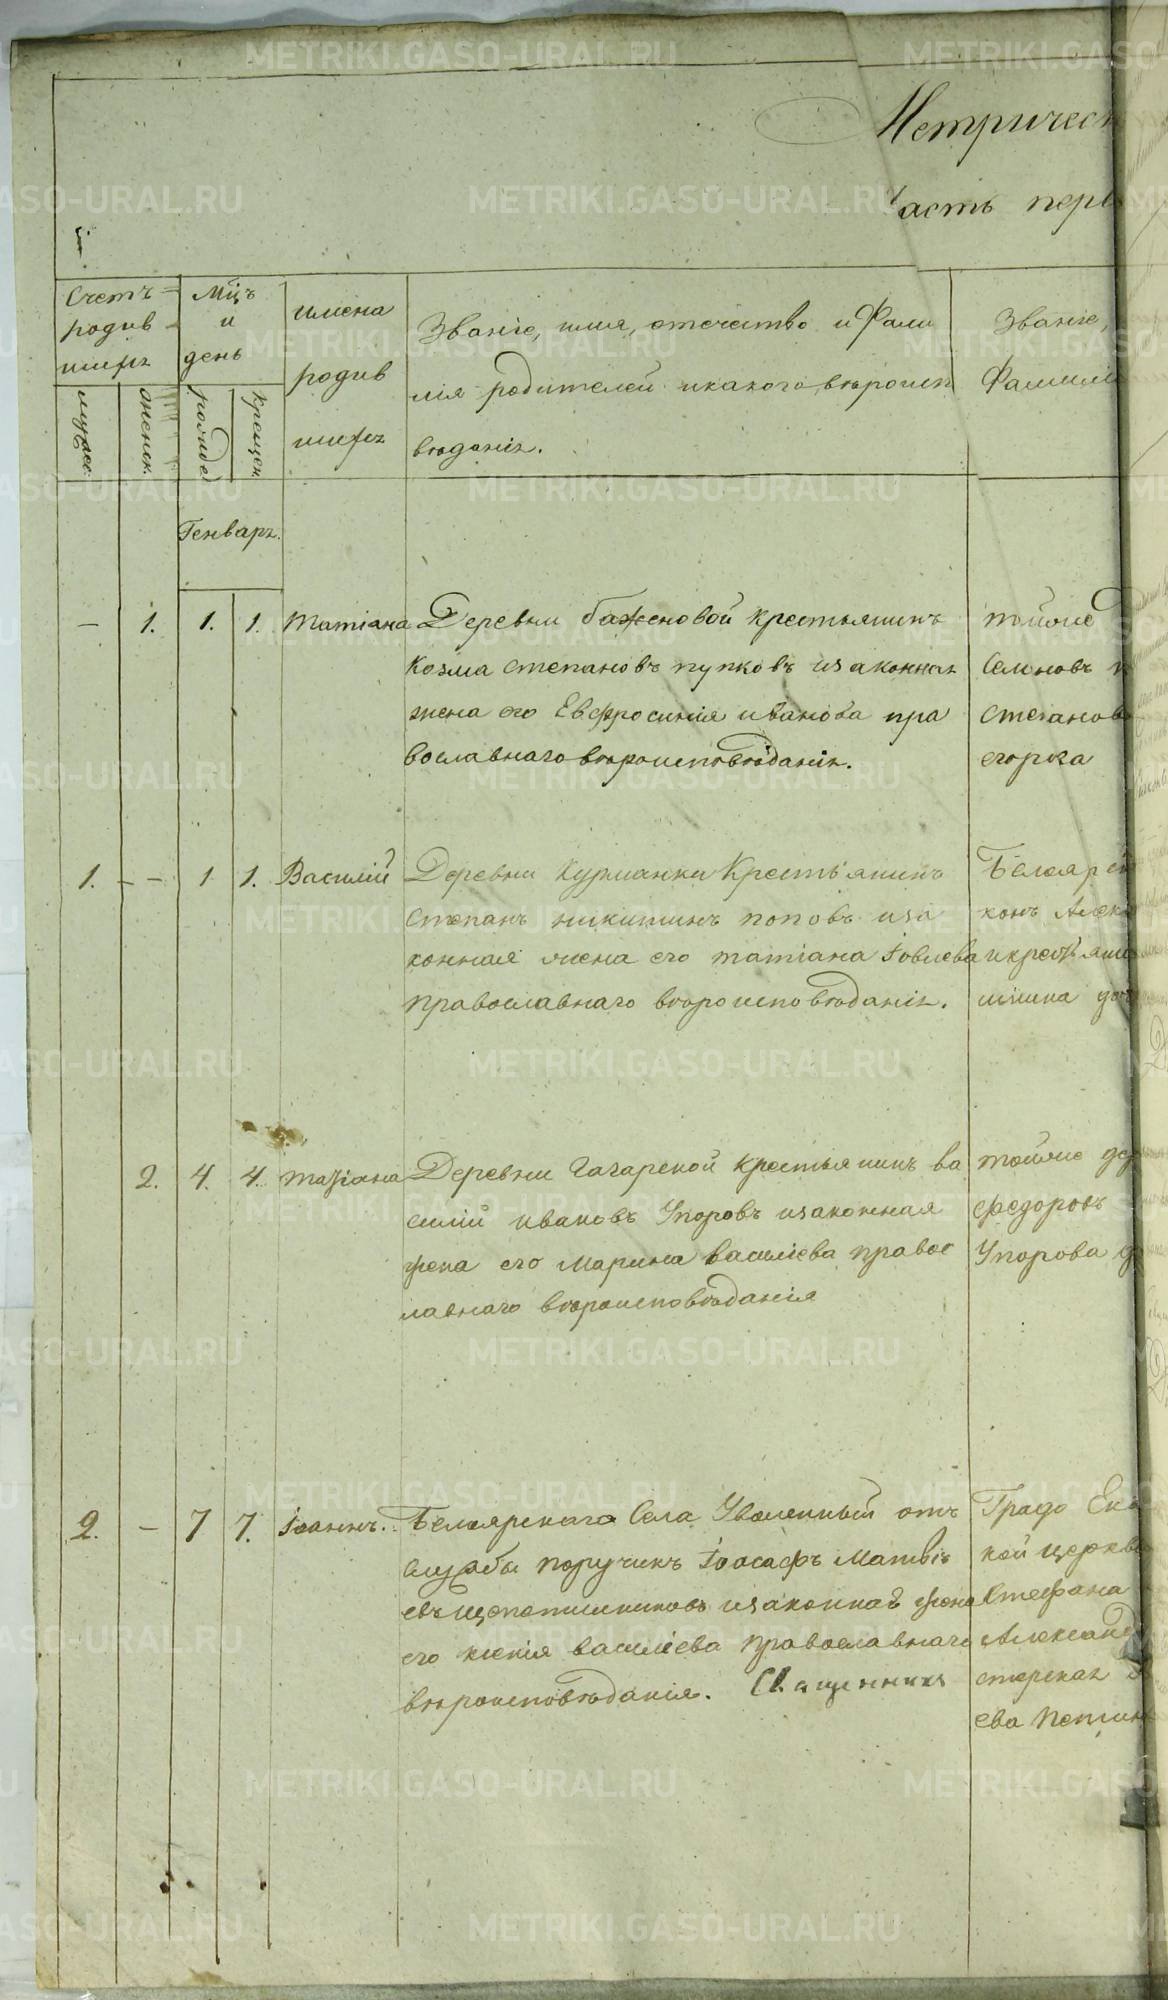 Метрическ
Часть перв
Счетъ
родив
шихъ
мужес.
женск.
Мцъ
и
день
рожде
крещен.
имена
родив
шихъ
Званіе, имя, отечество и Фами
лія родителей и какого вѣроисп
вѣданія.
Званіе,
Фамилі
Генварь.
— 1. 1. 1. Татіана Деревни баженовой крестьянинъ
Козма степановъ пупковъ изаконная
жена его Евфросинія иванова пра
вославнаго вѣроисповѣданія.
тойже
Семновъ
степанов
егорова
1. — — 1 1. Василій Деревни Курманки Крестьянинъ
степанъ никитинъ поповъ иза
конная жена его татіана Іовлева
православнаго вѣроисповѣданія.
Белоярс
конъ Алек
икрестьяни
шишка доч
2. 4. 4. татіана Деревни Гагарской крестьянинъ ва
силій ивановъ Упоровъ изаконная
жена его Марина василіева правос
лавнаго вѣроисповѣданія
тойже де
федоровъ
Упорова
2. — 7 7. іоаннъ. Белоярскаго Села Уволенный отъ
службы поручикъ Іоасафъ Матвіе
евъ изаконная жена
его ксенія василіева православнаго
вѣроисповѣданія. Священникъ
Градо Ека
кой церкв
Стефана
Александ
ева
METRIKI.GASO-URAL.RU